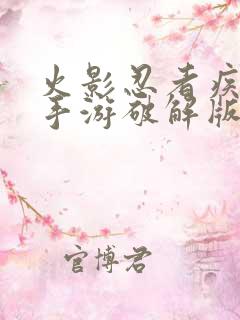 火影忍者疾
手游破解版
官博君